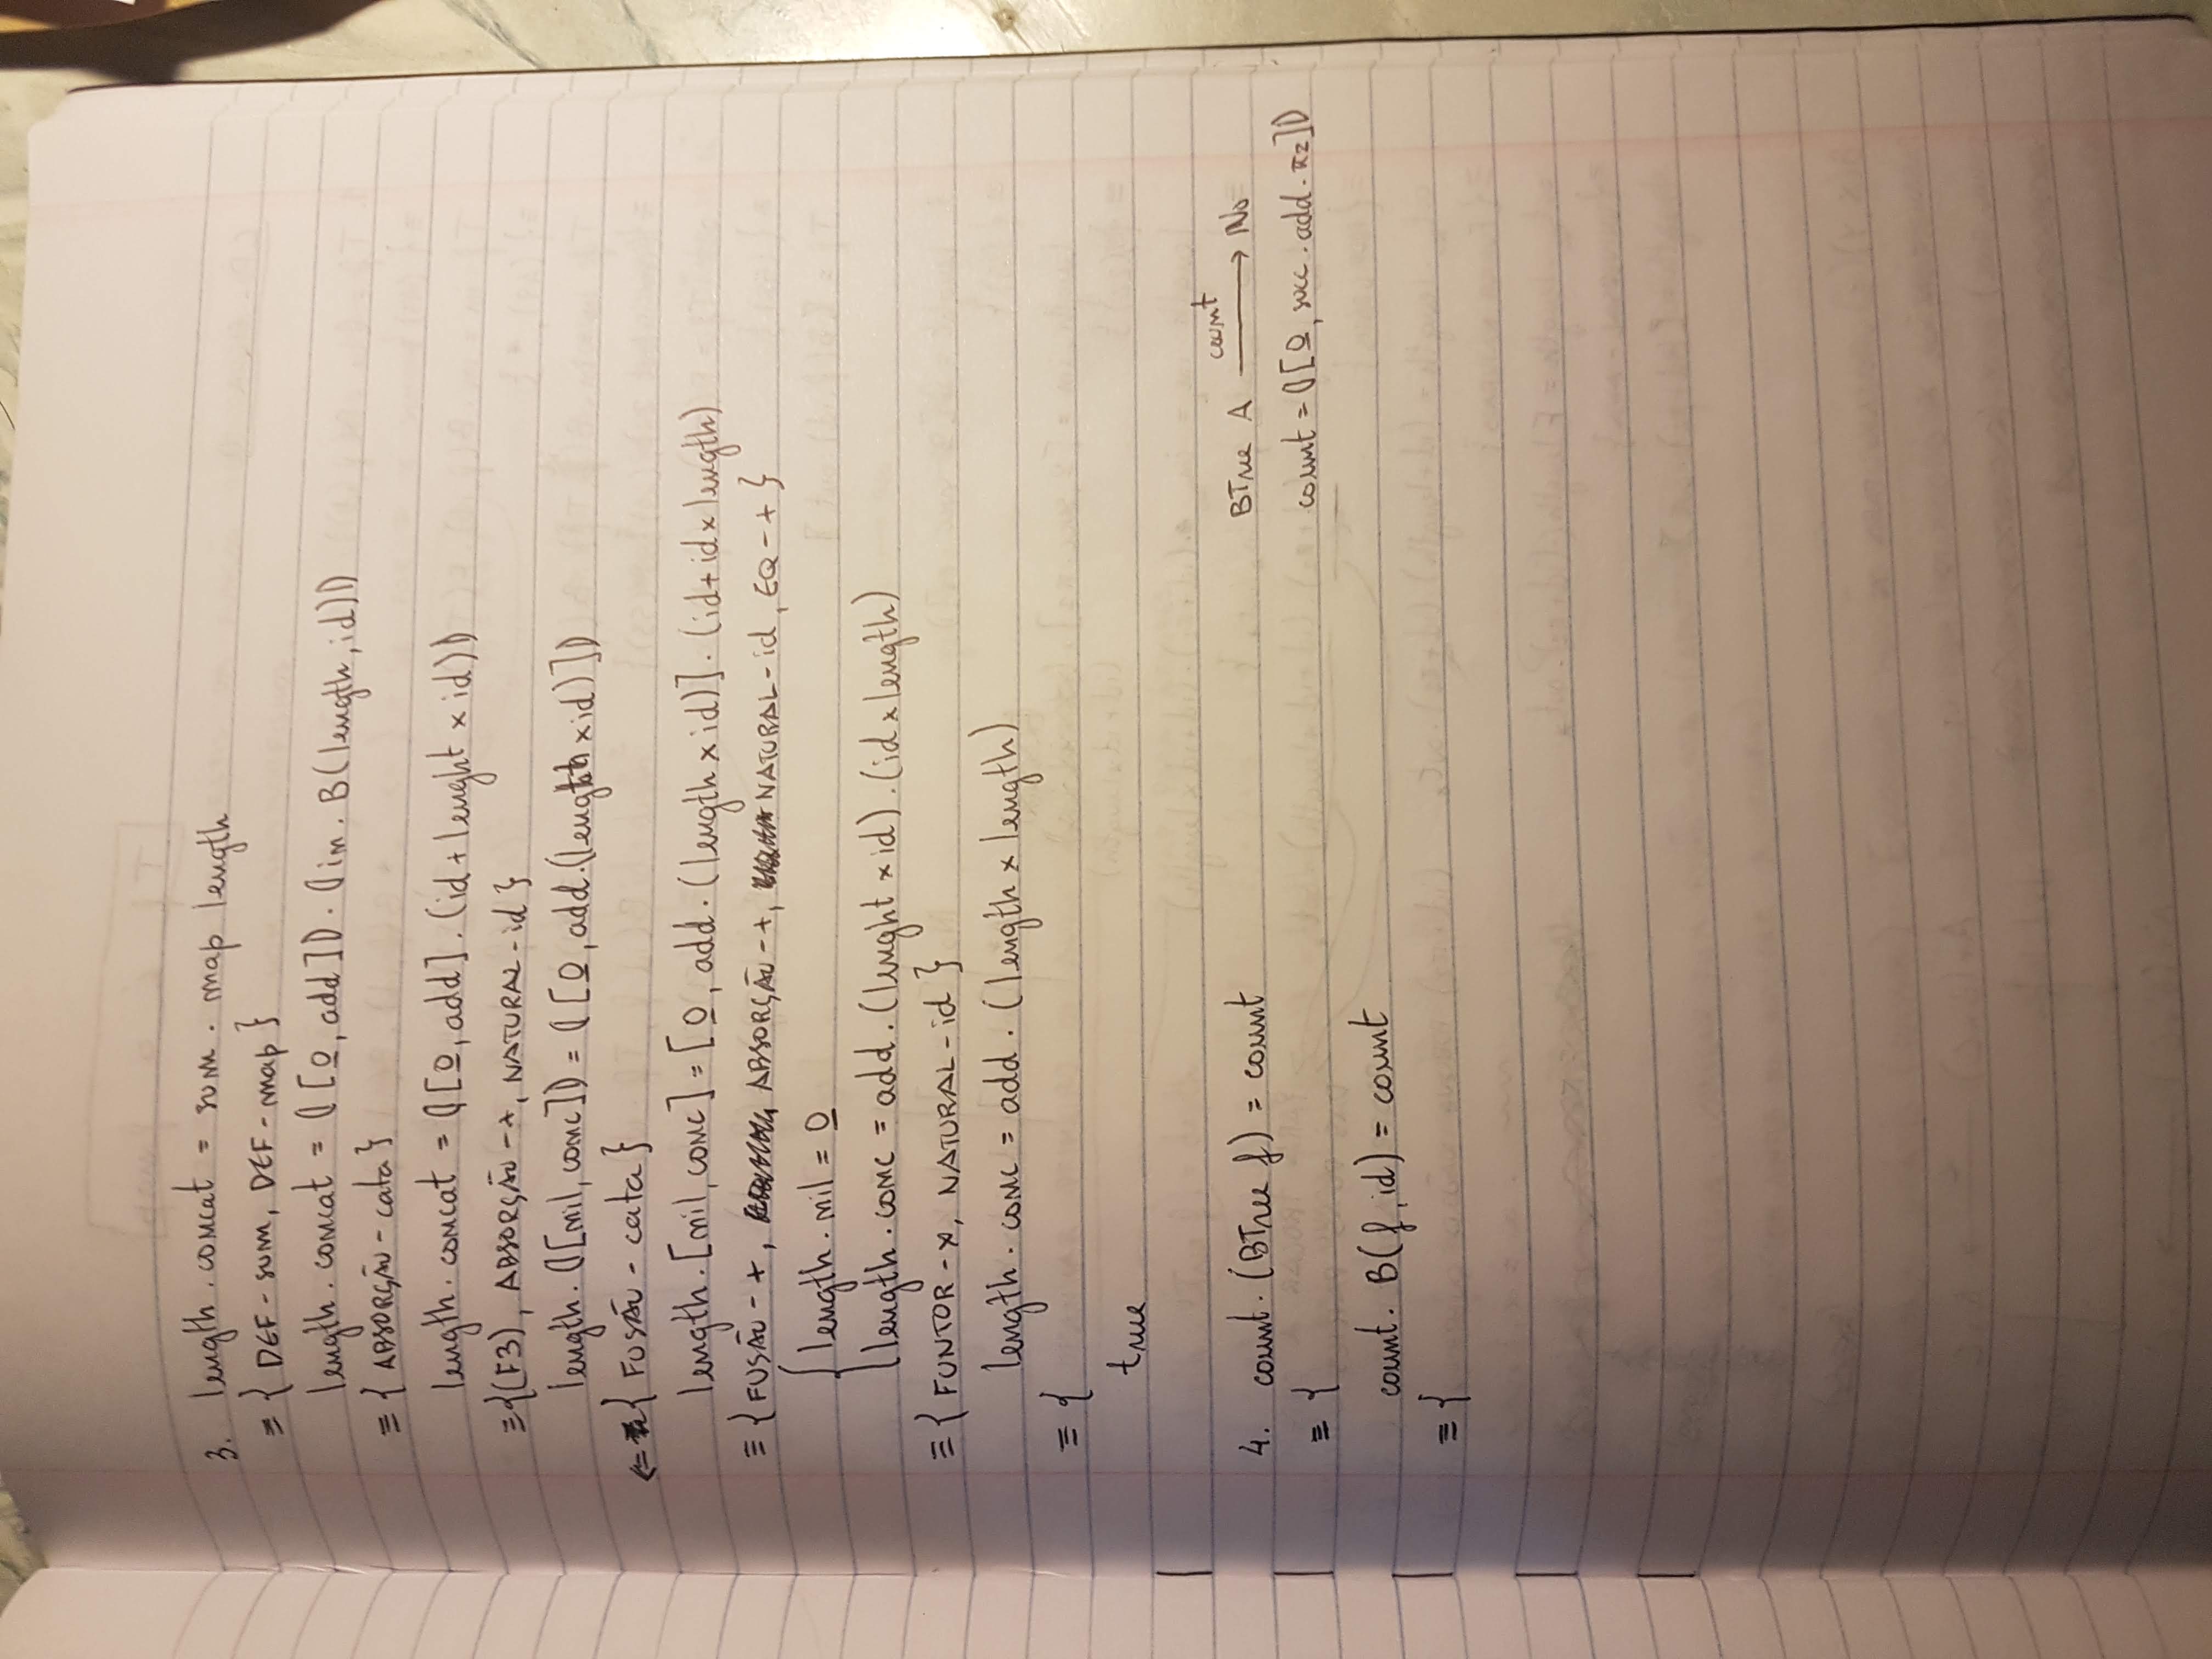 3. length . concat = sum . map length
≡ { DEF - sum, DEF - map }
length . concat = ⦇[0, add]⦈ . ⦇in . B(length, id)⦈
≡ { ABSORÇÃO - cata }
length . concat = ⦇[0, add] . (id + lenght × id)⦈
≡ {(F3), ABSORÇÃO - +, NATURAL - id }
length . ⦇[nil, conc]⦈ = ⦇[0, add . (length × id)]⦈
⇐ { FUSÃO - cata }
length . [nil, conc] = [0, add . (length × id)] . (id + id × length)
≡ { FUSÃO - +, ABSORÇÃO - +, NATURAL - id, EQ - + }
{ length . nil = 0
length . conc = add . (lenght × id) . (id × length)
≡ { FUNTOR - ×, NATURAL - id }
length . conc = add . (length × length)
≡ {
true
4. count . (BTree f) = count
≡ {
count . B(f, id) = count
≡ {
BTree A count → N0
count = ⦇[0, succ . add . π2]⦈